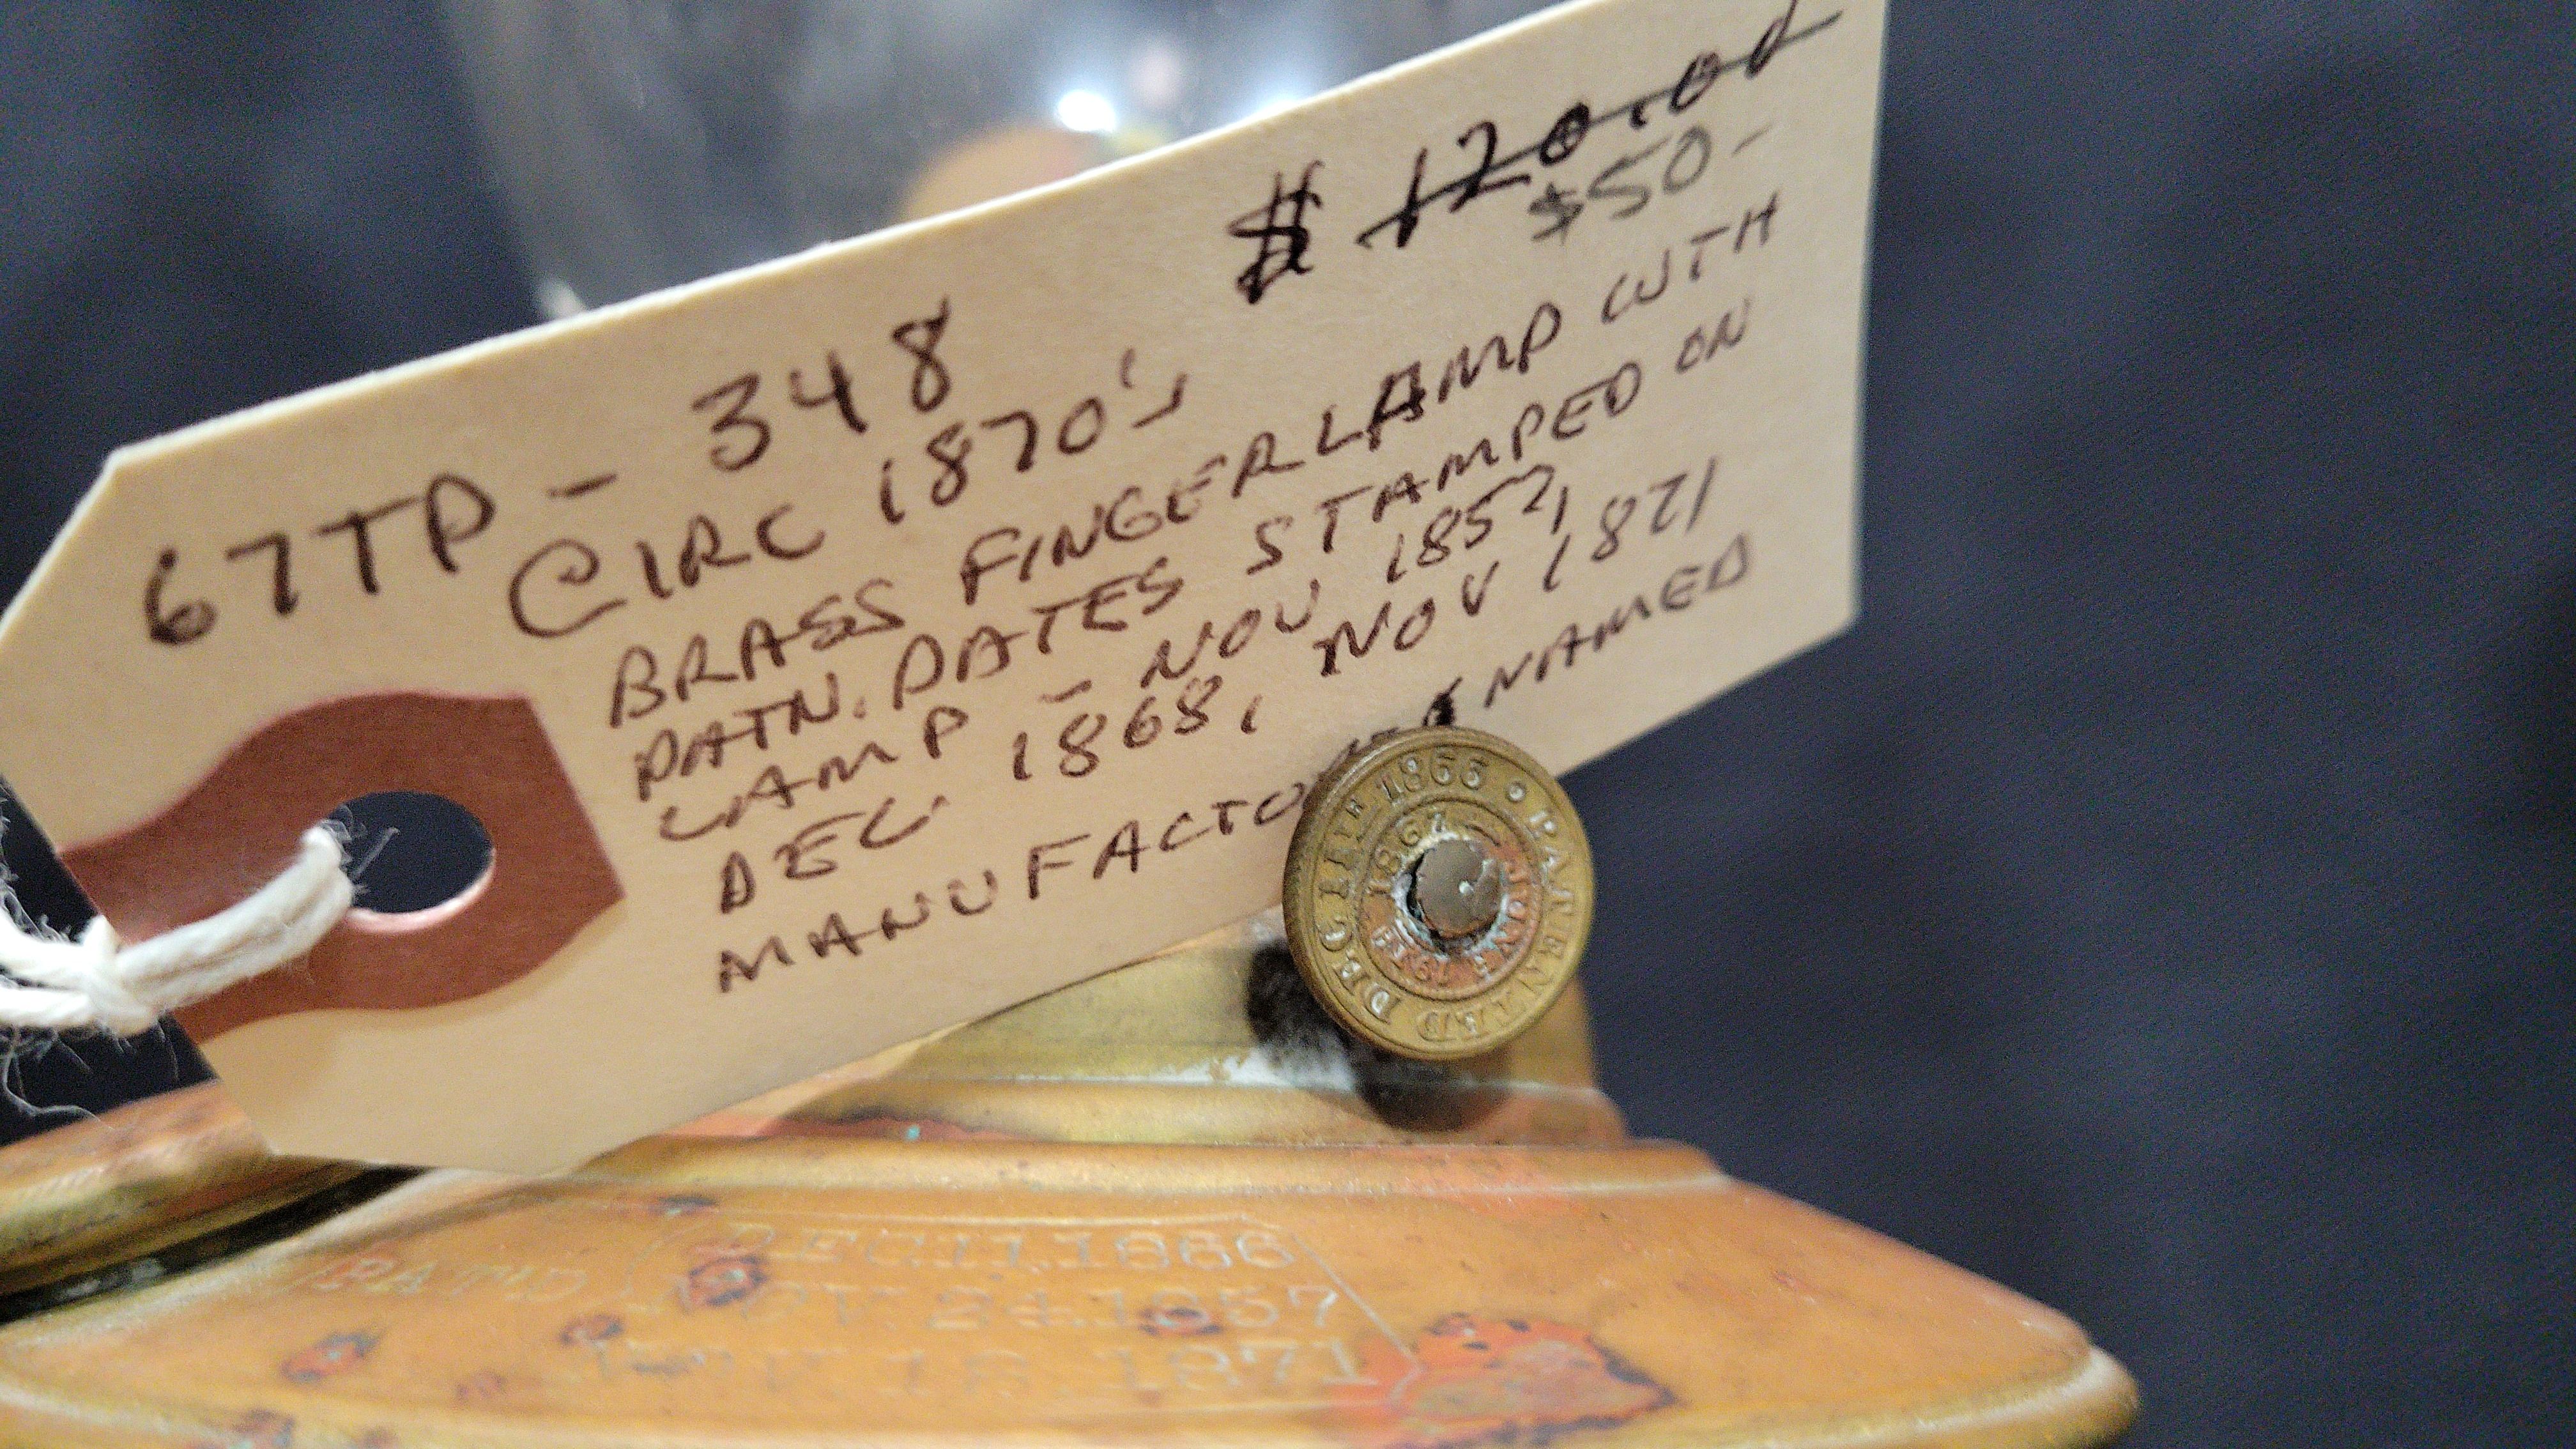 67TP - 348
$ 120.00
$50-
CIRC 1870's
BRASS FINGER LAMP WITH
PATN. DATES STAMPED ON
LAMP - NOV 1857,
DEC. 1868, NOV 1871
NAMED
PATENTED DEC 11TH 1866
1867
PAT'D DEC 11, 1866
NOV. 24, 1857
1871